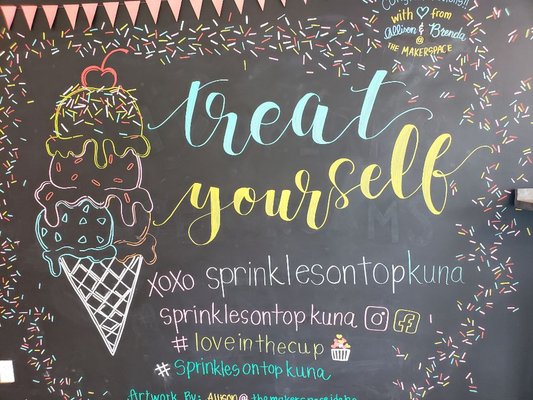 with from
Allison & Brenda
@
THE MAKERSPACE
treat
yourself
xoxo sprinklesontopkuna
sprinklesontopkuna
#loveinthecup
#sprinklesontopkuna
Artwork By: Allison@